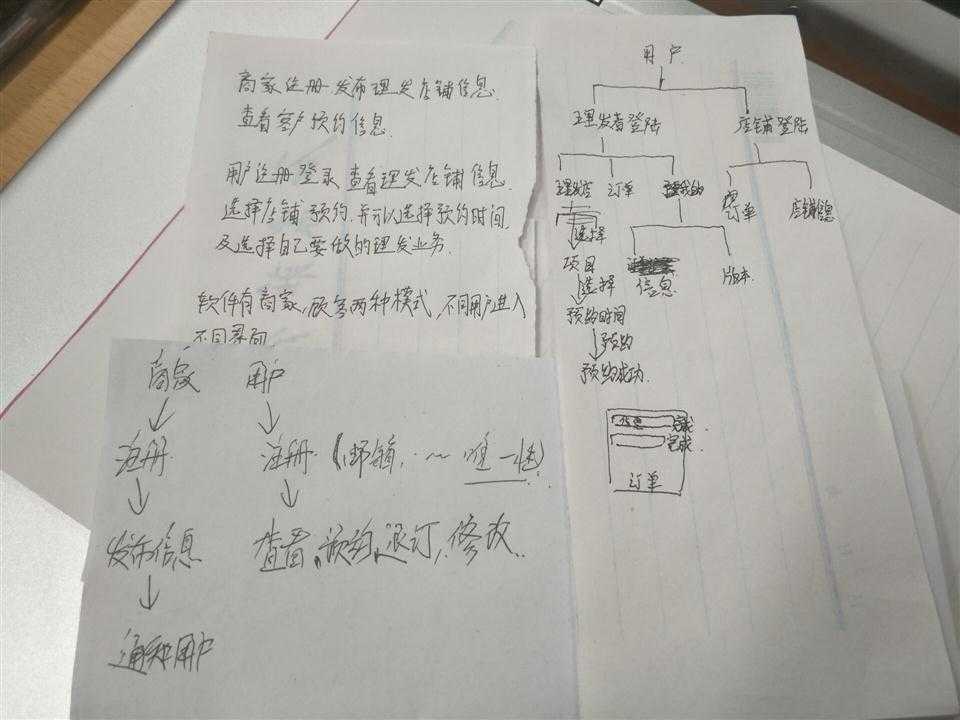 商家注册.发布理发店铺信息.
查看客户预约信息.
用户注册登录 查看理发店铺信息.
选择店铺预约,并可以选择预约时间
及选择自己要做的理发业务.
软件有商家,顾客两种模式,不同用户进入
不同界面
商家 用户
注册 注册
唯一性)
发布信息 查看,预约,退订,修改.
通知用户
用户
理发者登陆 店铺登陆
理发店 订单 我的 订单 店铺信息
选择
项目 信息 版本
选择
预约时间
预约
预约成功.
信息 完成.
完成.
订单